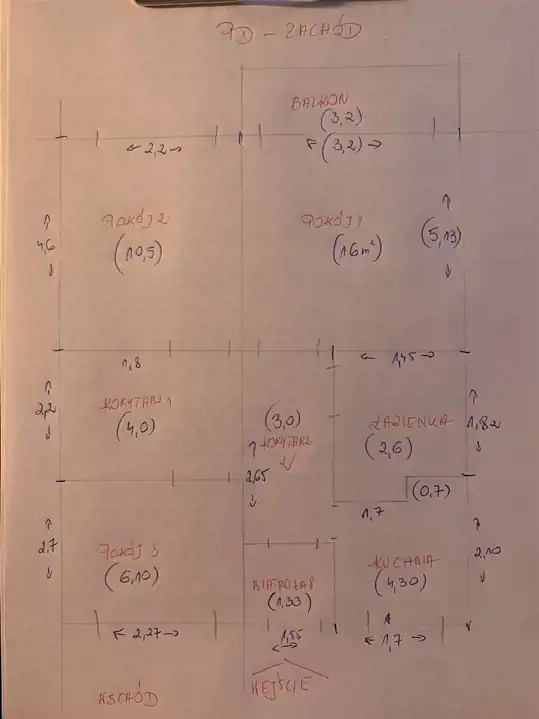 PD - ZACHÓD
BALKON
(3,2)
← 2,2 →
← (3,2) →
POKÓJ 2
(10,5)
POKÓJ 1
(16 m²)
↑
4,6
↓
↑
(5,13)
↓
1,8
← 1,45 →
↑
2,2
↓
KORYTARZ 1
(4,0)
(3,0)
KORYTARZ
2
↑
2,65
↓
ŁAZIENKA
(2,6)
↑
1,82
↓
(0,7)
1,7
↑
2,7
↓
POKÓJ 3
(6,10)
WIATROŁAP
(1,33)
KUCHNIA
(4,30)
↑
2,10
↓
← 2,27 →
1,55
← 1,7 →
WSCHÓD
WEJŚCIE